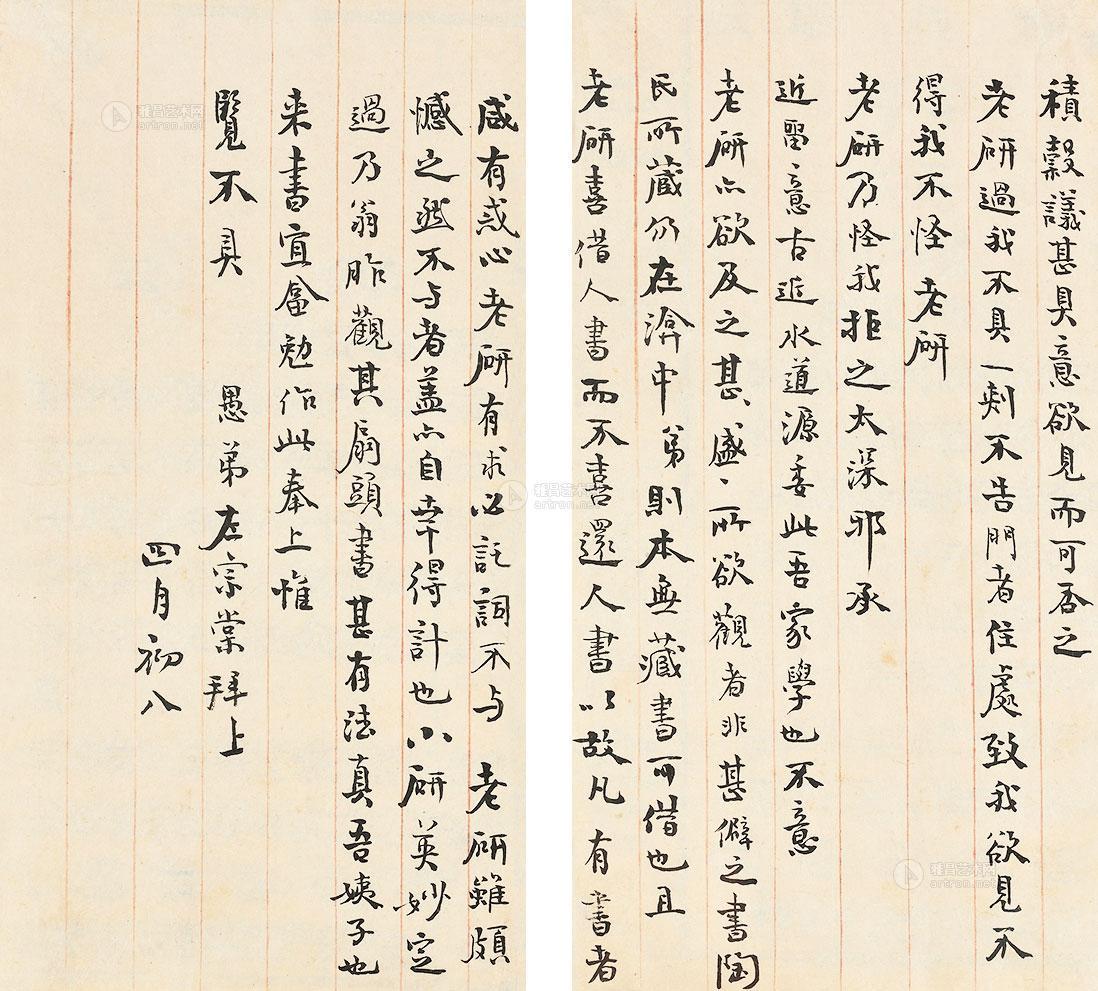 積穀議甚具意欲見而可否之
老研過我不具一剌不告門者住處致我欲見不
得我不怪老研
老研乃怪我拒之太深邪承
近留意古近水道源委此吾家學也不意
老研亦欲及之甚盛、所欲觀者非甚僻之書陶
氏所藏仍在渝中弟則本無藏書可借也且
老研喜借人書而不喜還人書以故凡有書者
咸有惑心老研有求必託詞不与老研雖頗
憾之然不与者盖亦自幸得計也小研英妙定
過乃翁昨觀其扇頭書甚有法真吾姨子也
来書宜畣勉作此奉上惟
覽不具 愚弟左宗棠拜上
四月初八
雅昌艺术网
artron.net
雅昌艺术网
artron.net
雅昌艺术网
artron.net